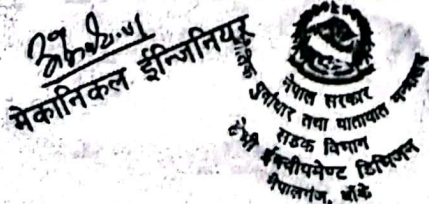 मेकानिकल ईन्जिनियर
नेपाल सरकार
पूर्वाधार तथा यातायात
सडक विभाग
हेभी ईक्वीपमेण्ट डिभिजन
नेपालगंज, बाँके